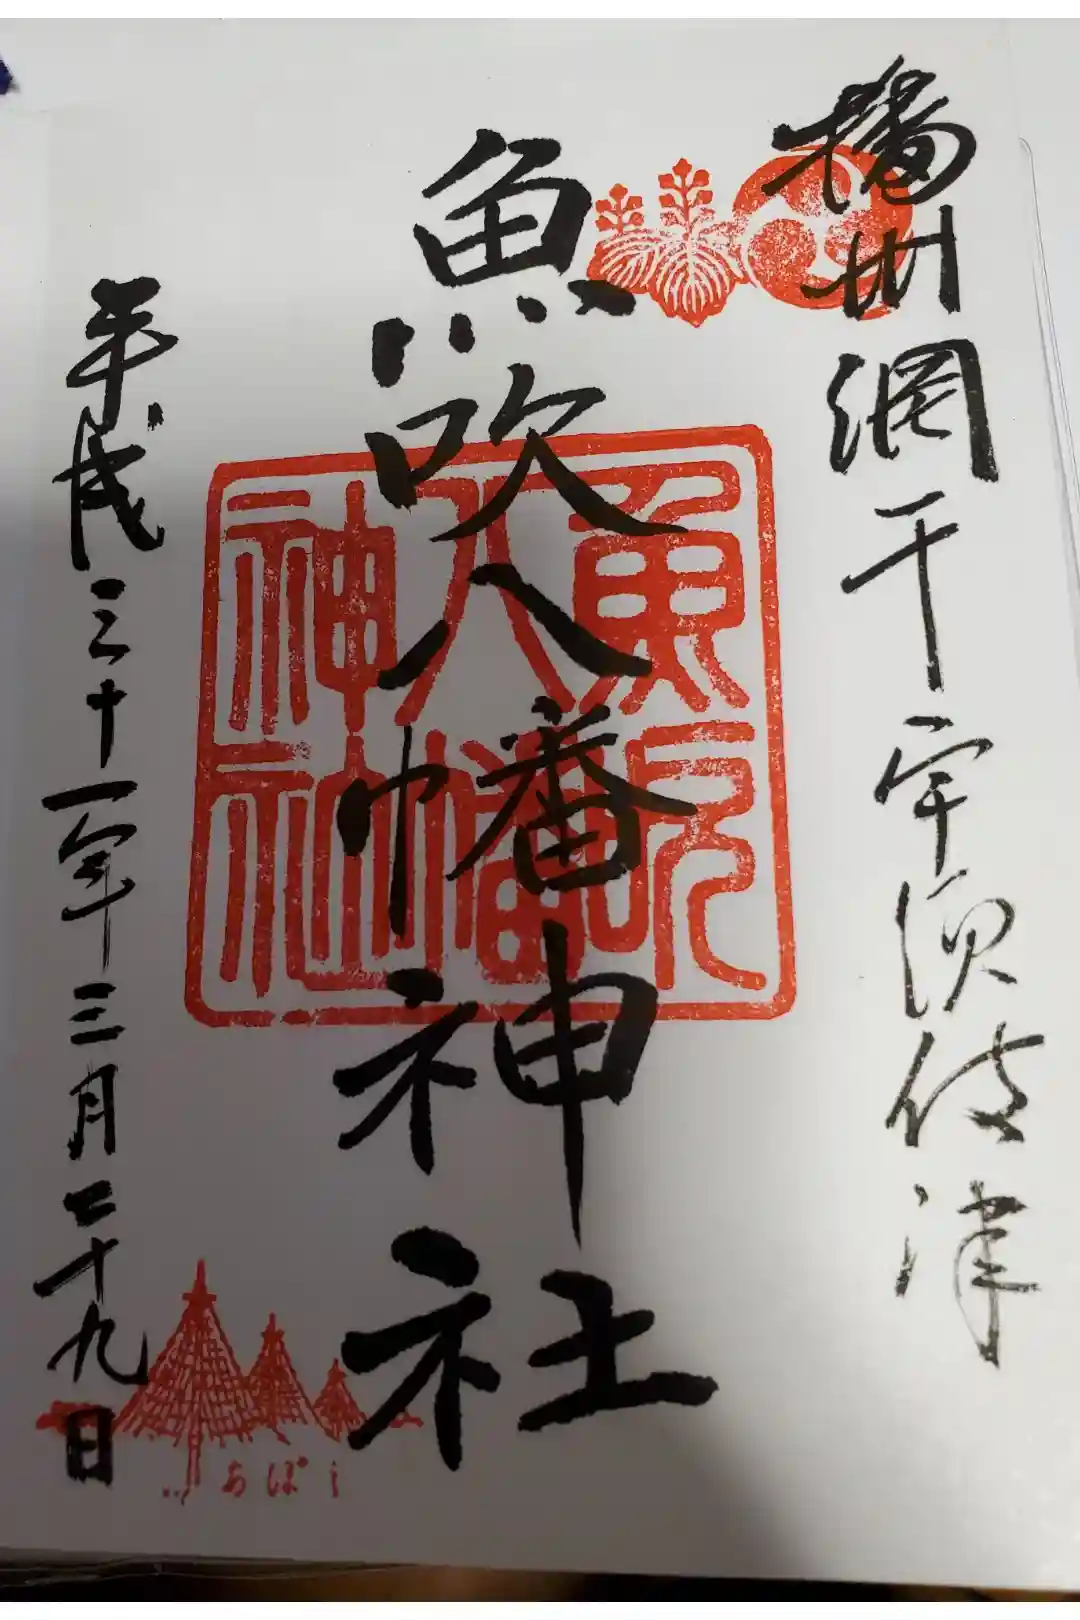 播州網干宇須伎津
魚吹八幡神社
魚吹
八幡
神社
平成三十一年三月二十九日
あぼし